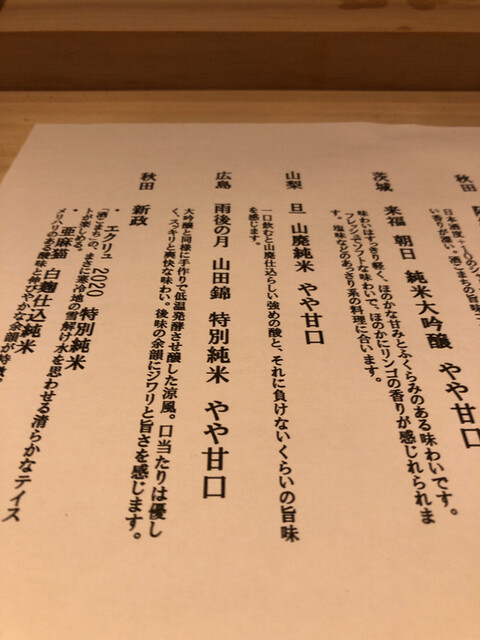 秋田
日本酒度+10の
い香りが漂い、「酒こまちの旨味
茨城 来福 朝日 純米大吟醸 やや甘口
味わいはすっきり軽く、ほのかな甘みとふくらみのある味わいです。
フレッシュでソフトな味わいで、ほのかにリンゴの香りが感じれられま
す。塩味などのあっさり系の料理に合います。
山梨 旦 山廃純米 やや甘口
一口飲むと山廃仕込らしい強めの酸と、それに負けないくらいの旨味
を感じます。
広島 雨後の月 山田錦 特別純米 やや甘口
大吟醸と同様に手作りで低温発酵させ醸した涼風。口当たりは優し
く、スッキリと爽快な味わい。後味の余韻にジワリと旨さを感じます。
秋田 新政
・エクリュ 2020 特別純米
「酒こまち」の、まさに寒冷地の雪解け水を思わせる清らかなテイス
トが楽しめる。
・亜麻猫 白麹仕込純米
メリハリのある酸味と伸びやかな余韻が特徴。